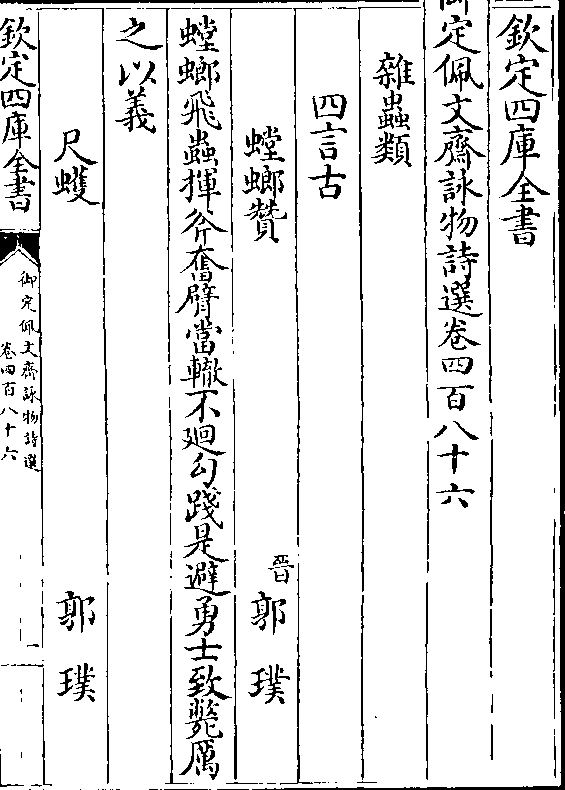 欽定四庫全書
御定佩文齋詠物詩選卷四百八十六
雜蟲類
四言古
螳螂贊 晉 郭璞
螳螂飛蟲揮斧奮臂當轍不廻勾踐是避勇士致斃厲
之以義
尺蠖 郭璞
欽定四庫全書
御定佩文齋詠物詩選
卷四百八十六
一